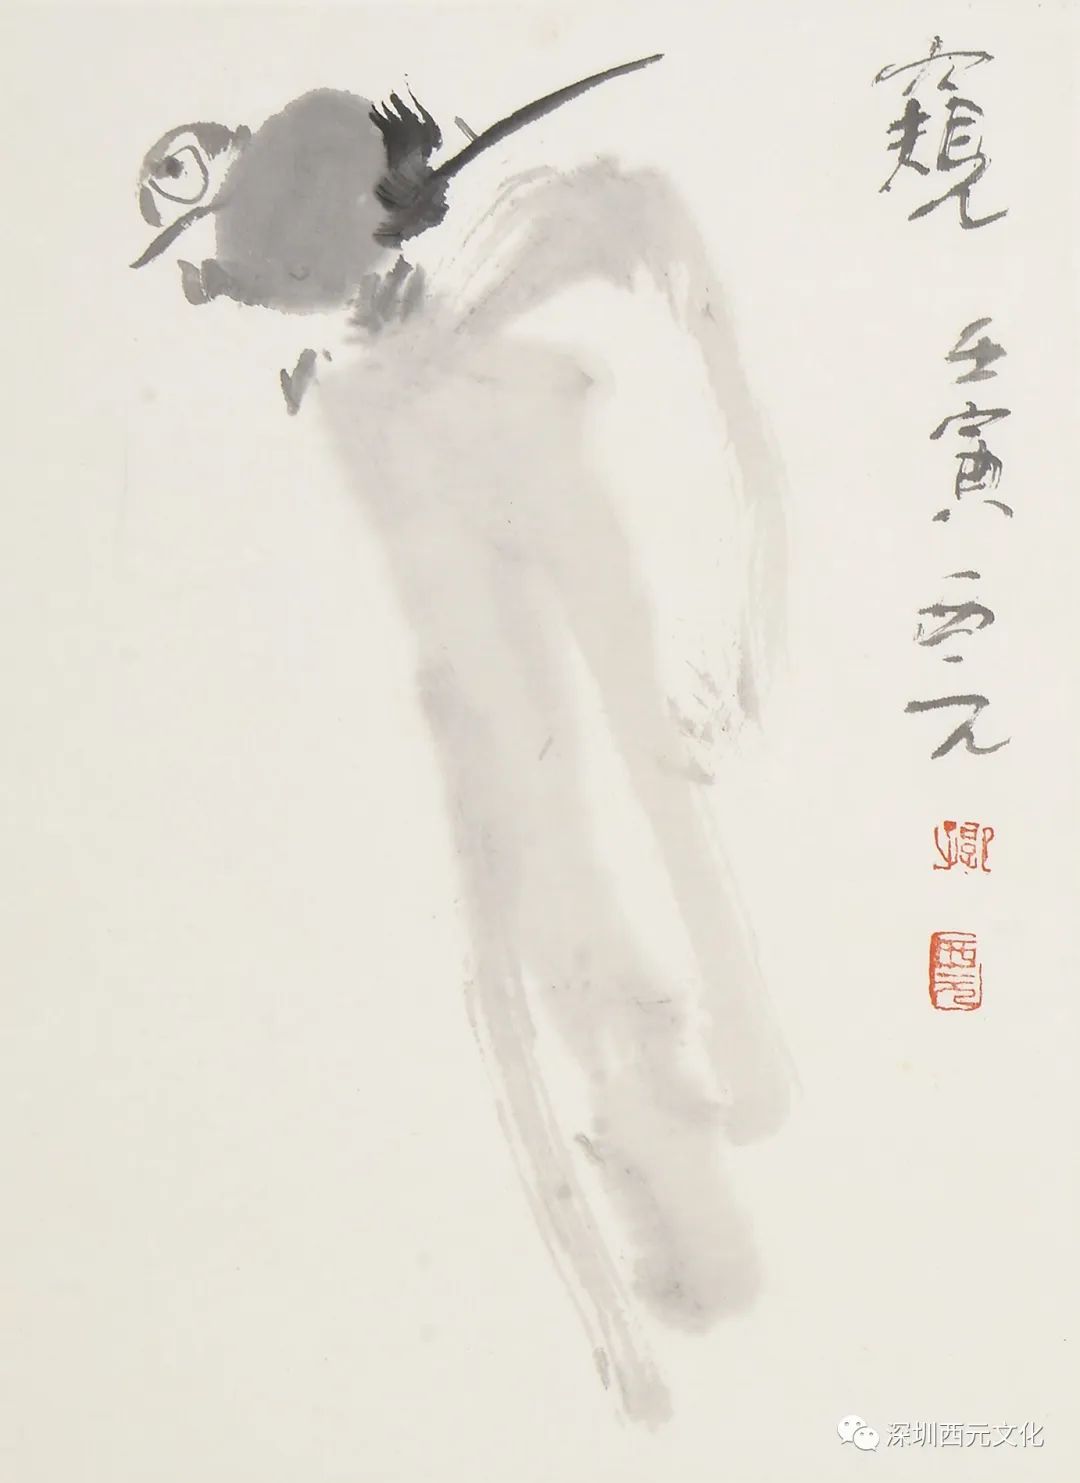 窥
壬寅
西元
西元
深圳西元文化